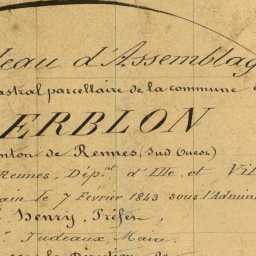 leau d'Assemblag
astral parcellaire de la commune
ERBLON
nton de Rennes (Sud Ouest)
Rennes, Dép.nt d'Ille et Vil
ain le 7 Février 1843 sous l'Admin
Henry, Préfet,
Judeaux Maire
la Direction de